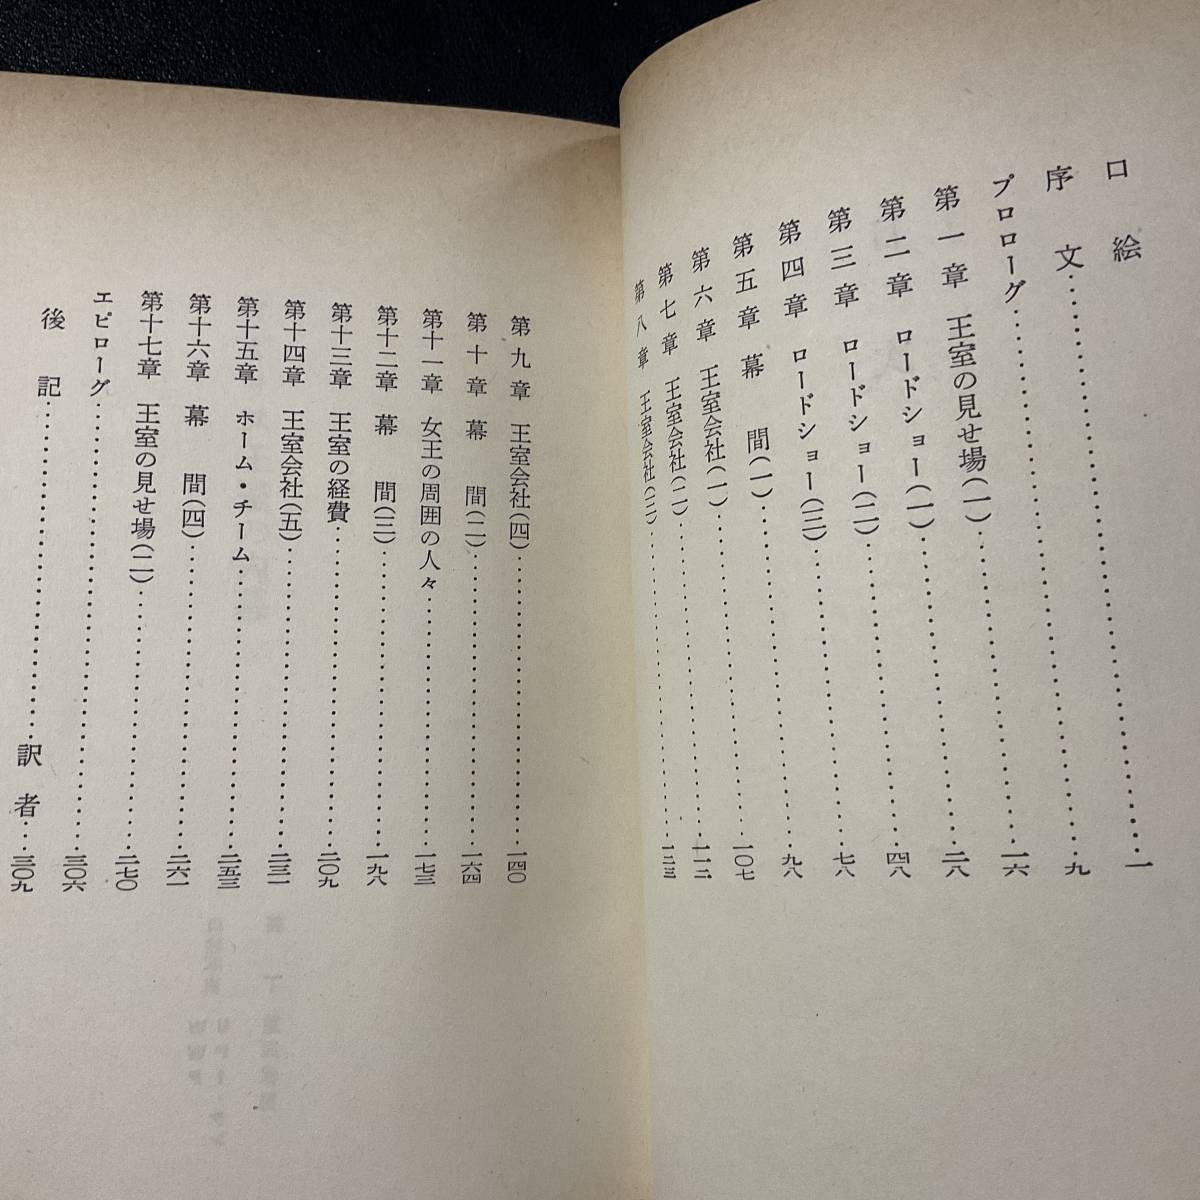 口絵……一
序文……九
プロローグ……一六
第一章 王室の見せ場(一)……二八
第二章 ロードショー(一)……四八
第三章 ロードショー(二)……七八
第四章 ロードショー(三)……九八
第五章 幕間(一)……一〇七
第六章 王室会社(一)……一一二
第七章 王室会社(二)
第八章 王室会社(三)……一二三
第九章 王室会社(四)……一四〇
第十章 幕間(二)……一六四
第十一章 女王の周囲の人々……一七三
第十二章 幕間(三)……一九八
第十三章 王室の経費……二〇九
第十四章 王室会社(五)……二三一
第十五章 ホーム・チーム……二五三
第十六章 幕間(四)……二六一
第十七章 王室の見せ場(二)……二七〇
エピローグ……三〇六
後記……訳者……三〇九